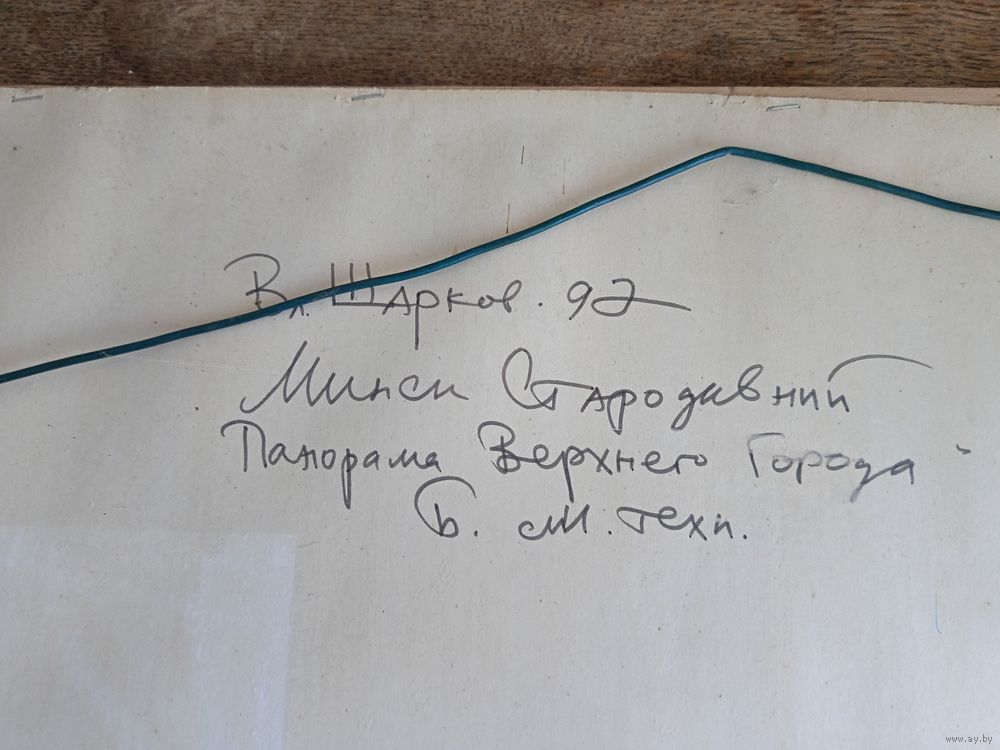 Вл. Шарков. 92
Минск Стародавний
Панорама Верхнего Города"
Б. см. техн.
www.ay.by